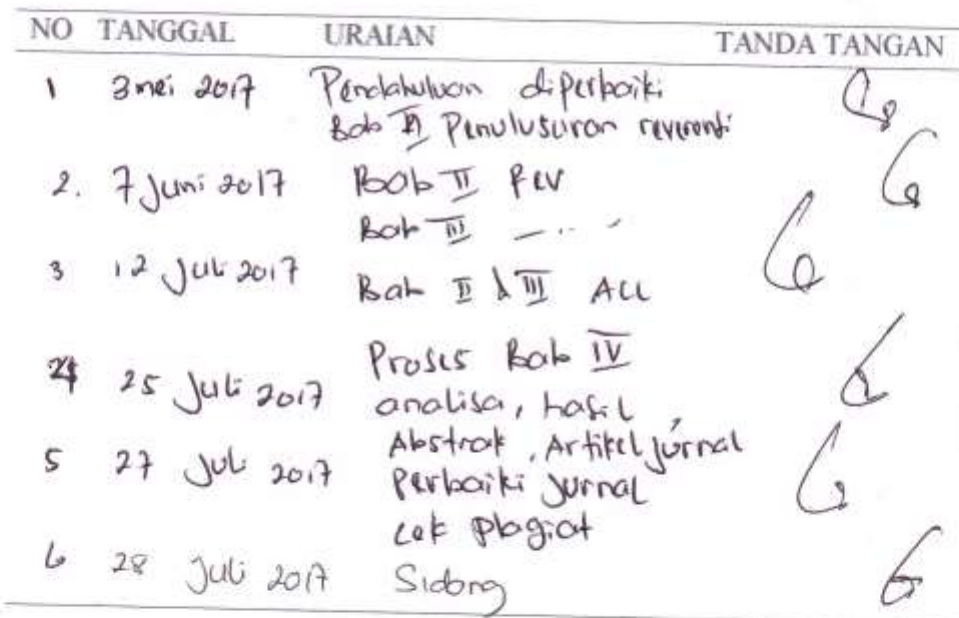 NO TANGGAL URAIAN TANDA TANGAN
1 3 mei 2017 Pendahuluan diperbaiki
Bab II Penulusuran reverensi
2. 7 Juni 2017 Bab II Rev
Bab III - .. -
3 12 Juli 2017 Bab II & III ACC
4 25 Juli 2017 Proses Bab IV
analisa, hasil
5 27 Juli 2017 Abstrak, Artikel jurnal
Perbaiki Jurnal
cek plagiat
6 28 Juli 2017 Sidang